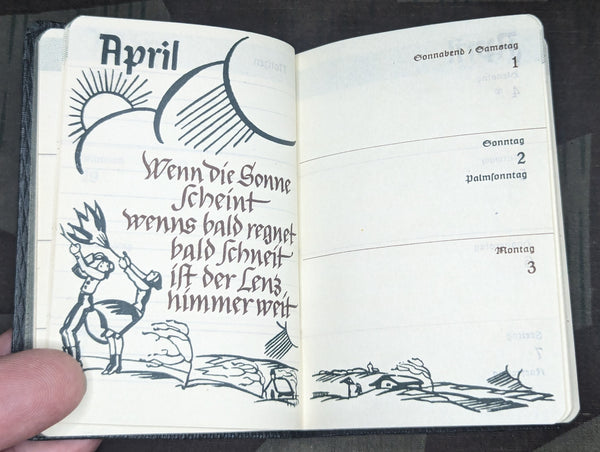 April
Wenn die Sonne
scheint
wenns bald regnet
bald schneit
ist der Lenz
nimmer weit
Sonnabend / Samstag
1
Sonntag
2
Palmsonntag
Montag
3